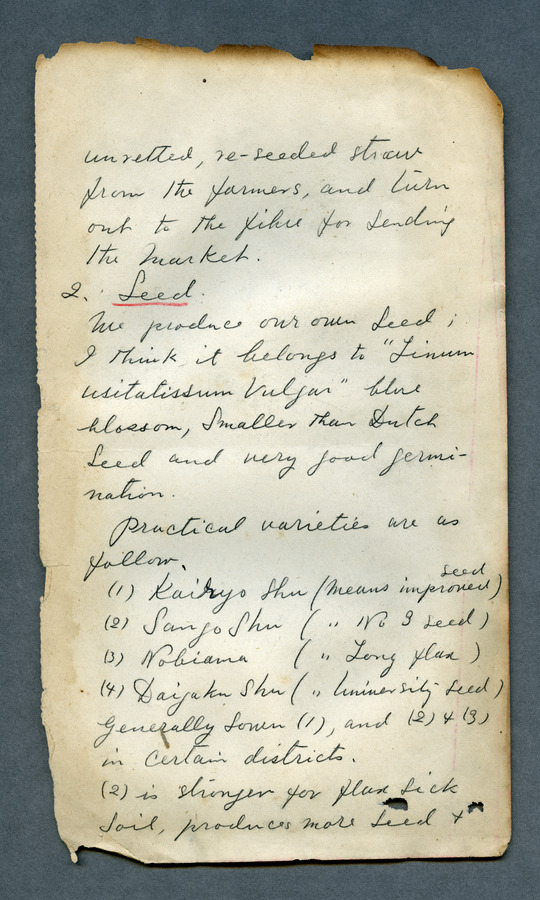 unretted, re-seeded straw
from the farmers, and turn
out to the fibre for sending
the market.
2. Seed.
We produce our own seed;
I think it belongs to "Linum
usitatissum Vulgar" blue
blossom, smaller than Dutch
seed and very good germi-
nation.
Practical varieties are as
follow.
(1) Kairyo Shu (means improved seed)
(2) Sango Shu ( " No 3 seed)
(3) Nobiama ( " Long flax)
(4) Daigaku Shu ( " University seed)
Generally sown (1), and (2) & (3)
in certain districts.
(2) is stronger for flax sick
soil, produces more seed &